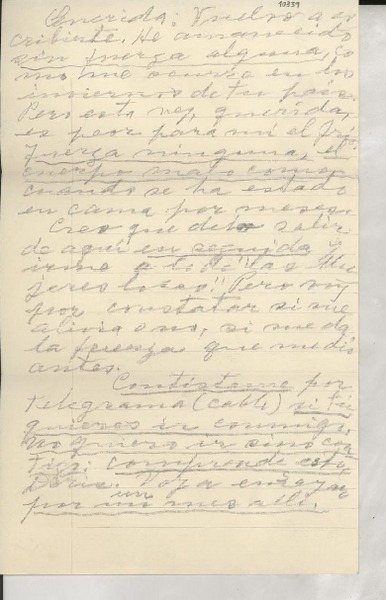 10339
Querida: Vuelvo a es
cribirte. He amanecido
sin fuerza alguna, co
mo me ocurría en los
inviernos de tu país.
Pero esta vez, querida,
es peor para mí el frío.
Fuerza ninguna, el
cuerpo malo como
cuando se ha estado
en cama por meses.
Creo que debo salir
de aquí en seguida
irme a lo de "las Mu
jeres locas". Pero voy
por constatar si me
alivia o no, si me da
la fuerza que me dió
antes.
Contéstame por
telegrama (cable) si tú
quieres ir conmigo.
No quiero ir sino con
tigo. Comprende esto,
Doris. Voy a ensayar
por un mes allí.